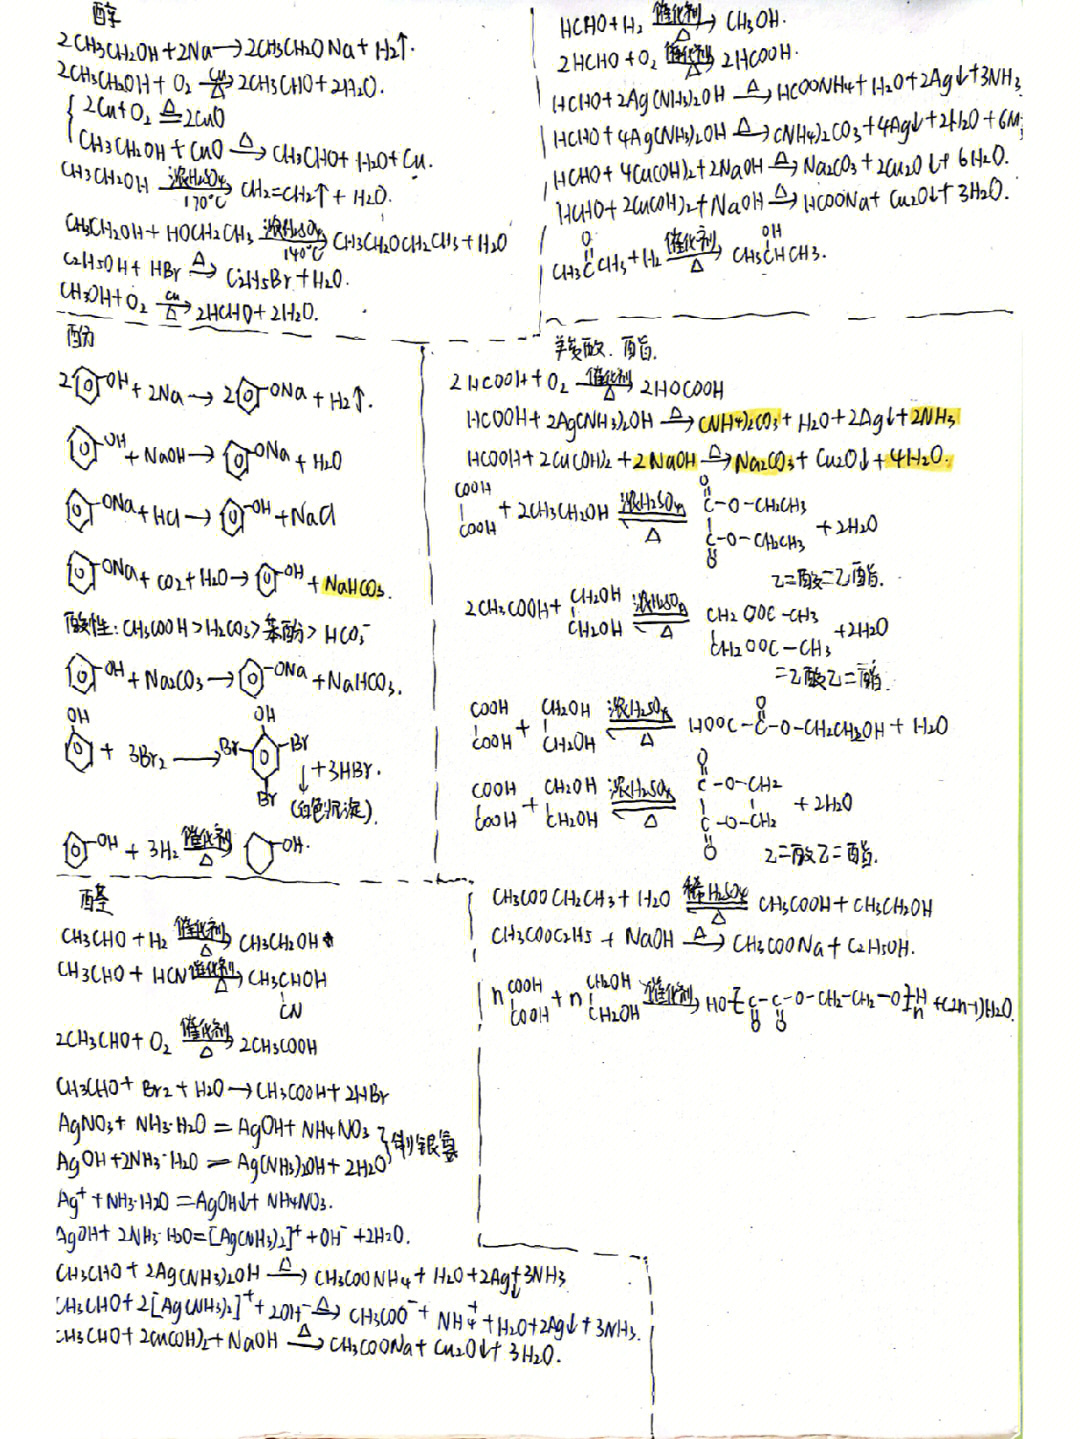 醇
2CH3CH2OH + 2Na → 2CH3CH2ONa + H2↑.
2CH3CH2OH + O2 —Cu/△→ 2CH3CHO + 2H2O.
2Cu + O2 =△= 2CuO
CH3CH2OH + CuO —△→ CH3CHO + H2O + Cu.
CH3CH2OH —浓H2SO4/170°C→ CH2=CH2↑ + H2O.
CH3CH2OH + HOCH2CH3 —浓H2SO4/140°C→ CH3CH2OCH2CH3 + H2O
C2H5OH + HBr —△→ C2H5Br + H2O.
CH3OH + O2 —Cu/△→ 2HCHO + 2H2O.
HCHO + H2 —催化剂/△→ CH3OH.
2HCHO + O2 —催化剂/△→ 2HCOOH.
HCHO + 2Ag(NH3)2OH —△→ HCOONH4 + H2O + 2Ag↓ + 3NH3
HCHO + 4Ag(NH3)2OH —△→ (NH4)2CO3 + 4Ag↓ + 2H2O + 6N
HCHO + 4Cu(OH)2 + 2NaOH —△→ Na2CO3 + 2Cu2O↓ + 6H2O.
HCHO + 2Cu(OH)2 + NaOH —△→ HCOONa + Cu2O↓ + 3H2O.
O OH
CH3CCH3 + H2 —催化剂/△→ CH3CHCH3.
酚
2 OH + 2Na → 2 ONa + H2↑.
OH + NaOH → ONa + H2O
ONa + HCl → OH + NaCl
ONa + CO2 + H2O → OH + NaHCO3.
酸性: CH3COOH > H2CO3 > 苯酚 > HCO3-
OH + Na2CO3 → ONa + NaHCO3.
OH OH
+ 3Br2 → Br Br + 3HBr.
Br (白色沉淀).
OH + 3H2 —催化剂/△→ OH.
羧酸、酯.
2HCOOH + O2 —催化剂/△→ 2HOCOOH
HCOOH + 2Ag(NH3)2OH —△→ (NH4)2CO3 + H2O + 2Ag↓ + 2NH3
HCOOH + 2Cu(OH)2 + 2NaOH —△→ Na2CO3 + Cu2O↓ + 4H2O.
COOH O
COOH + 2CH3CH2OH ⇌浓H2SO4/△ C-O-CH2CH3
C-O-CH2CH3 + 2H2O
O
乙二酸二乙酯.
2CH3COOH + CH2OH CH2OH ⇌浓H2SO4/△ CH2OOC-CH3
CH2OOC-CH3 + 2H2O
二乙酸乙二酯.
COOH COOH + CH2OH CH2OH ⇌浓H2SO4/△ HOOC-C-O-CH2CH2OH + H2O
O
COOH COOH + CH2OH CH2OH ⇌浓H2SO4/△ C-O-CH2
C-O-CH2 + 2H2O
O O
乙二酸乙二酯.
CH3COOCH2CH3 + H2O ⇌稀H2SO4/△ CH3COOH + CH3CH2OH
CH3COOC2H5 + NaOH —△→ CH3COONa + C2H5OH.
n COOH COOH + n CH2OH CH2OH —催化剂→ HO[C-C-O-CH2-CH2-O]nH + (2n-1)H2O.
O O
醛
CH3CHO + H2 —催化剂/△→ CH3CH2OH
CH3CHO + HCN —催化剂/△→ CH3CHOH
CN
2CH3CHO + O2 —催化剂/△→ 2CH3COOH
CH3CHO + Br2 + H2O → CH3COOH + 2HBr
AgNO3 + NH3·H2O = AgOH + NH4NO3
AgOH + 2NH3·H2O = Ag(NH3)2OH + 2H2O
制银氨
Ag+ + NH3·H2O = AgOH↓ + NH4NO3.
AgOH + 2NH3·H2O = [Ag(NH3)2]+ + OH- + 2H2O.
CH3CHO + 2Ag(NH3)2OH —△→ CH3COONH4 + H2O + 2Ag↓ + 3NH3
CH3CHO + 2[Ag(NH3)2]+ + 2OH- —△→ CH3COO- + NH4+ + H2O + 2Ag↓ + 3NH3.
CH3CHO + 2Cu(OH)2 + NaOH —△→ CH3COONa + Cu2O↓ + 3H2O.